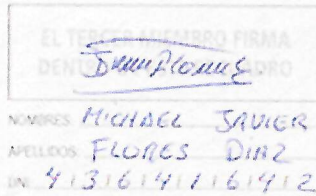 EL TERCER MIEMBRO FIRMA
DENTRO
NOMBRES MICHAEL JAVIER
APELLIDOS FLORES DIAZ
DNI 43641642